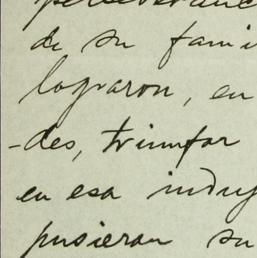 perseveranc
de su fami
lograron, en
-des, triunfar
en esa indus
pusieran su